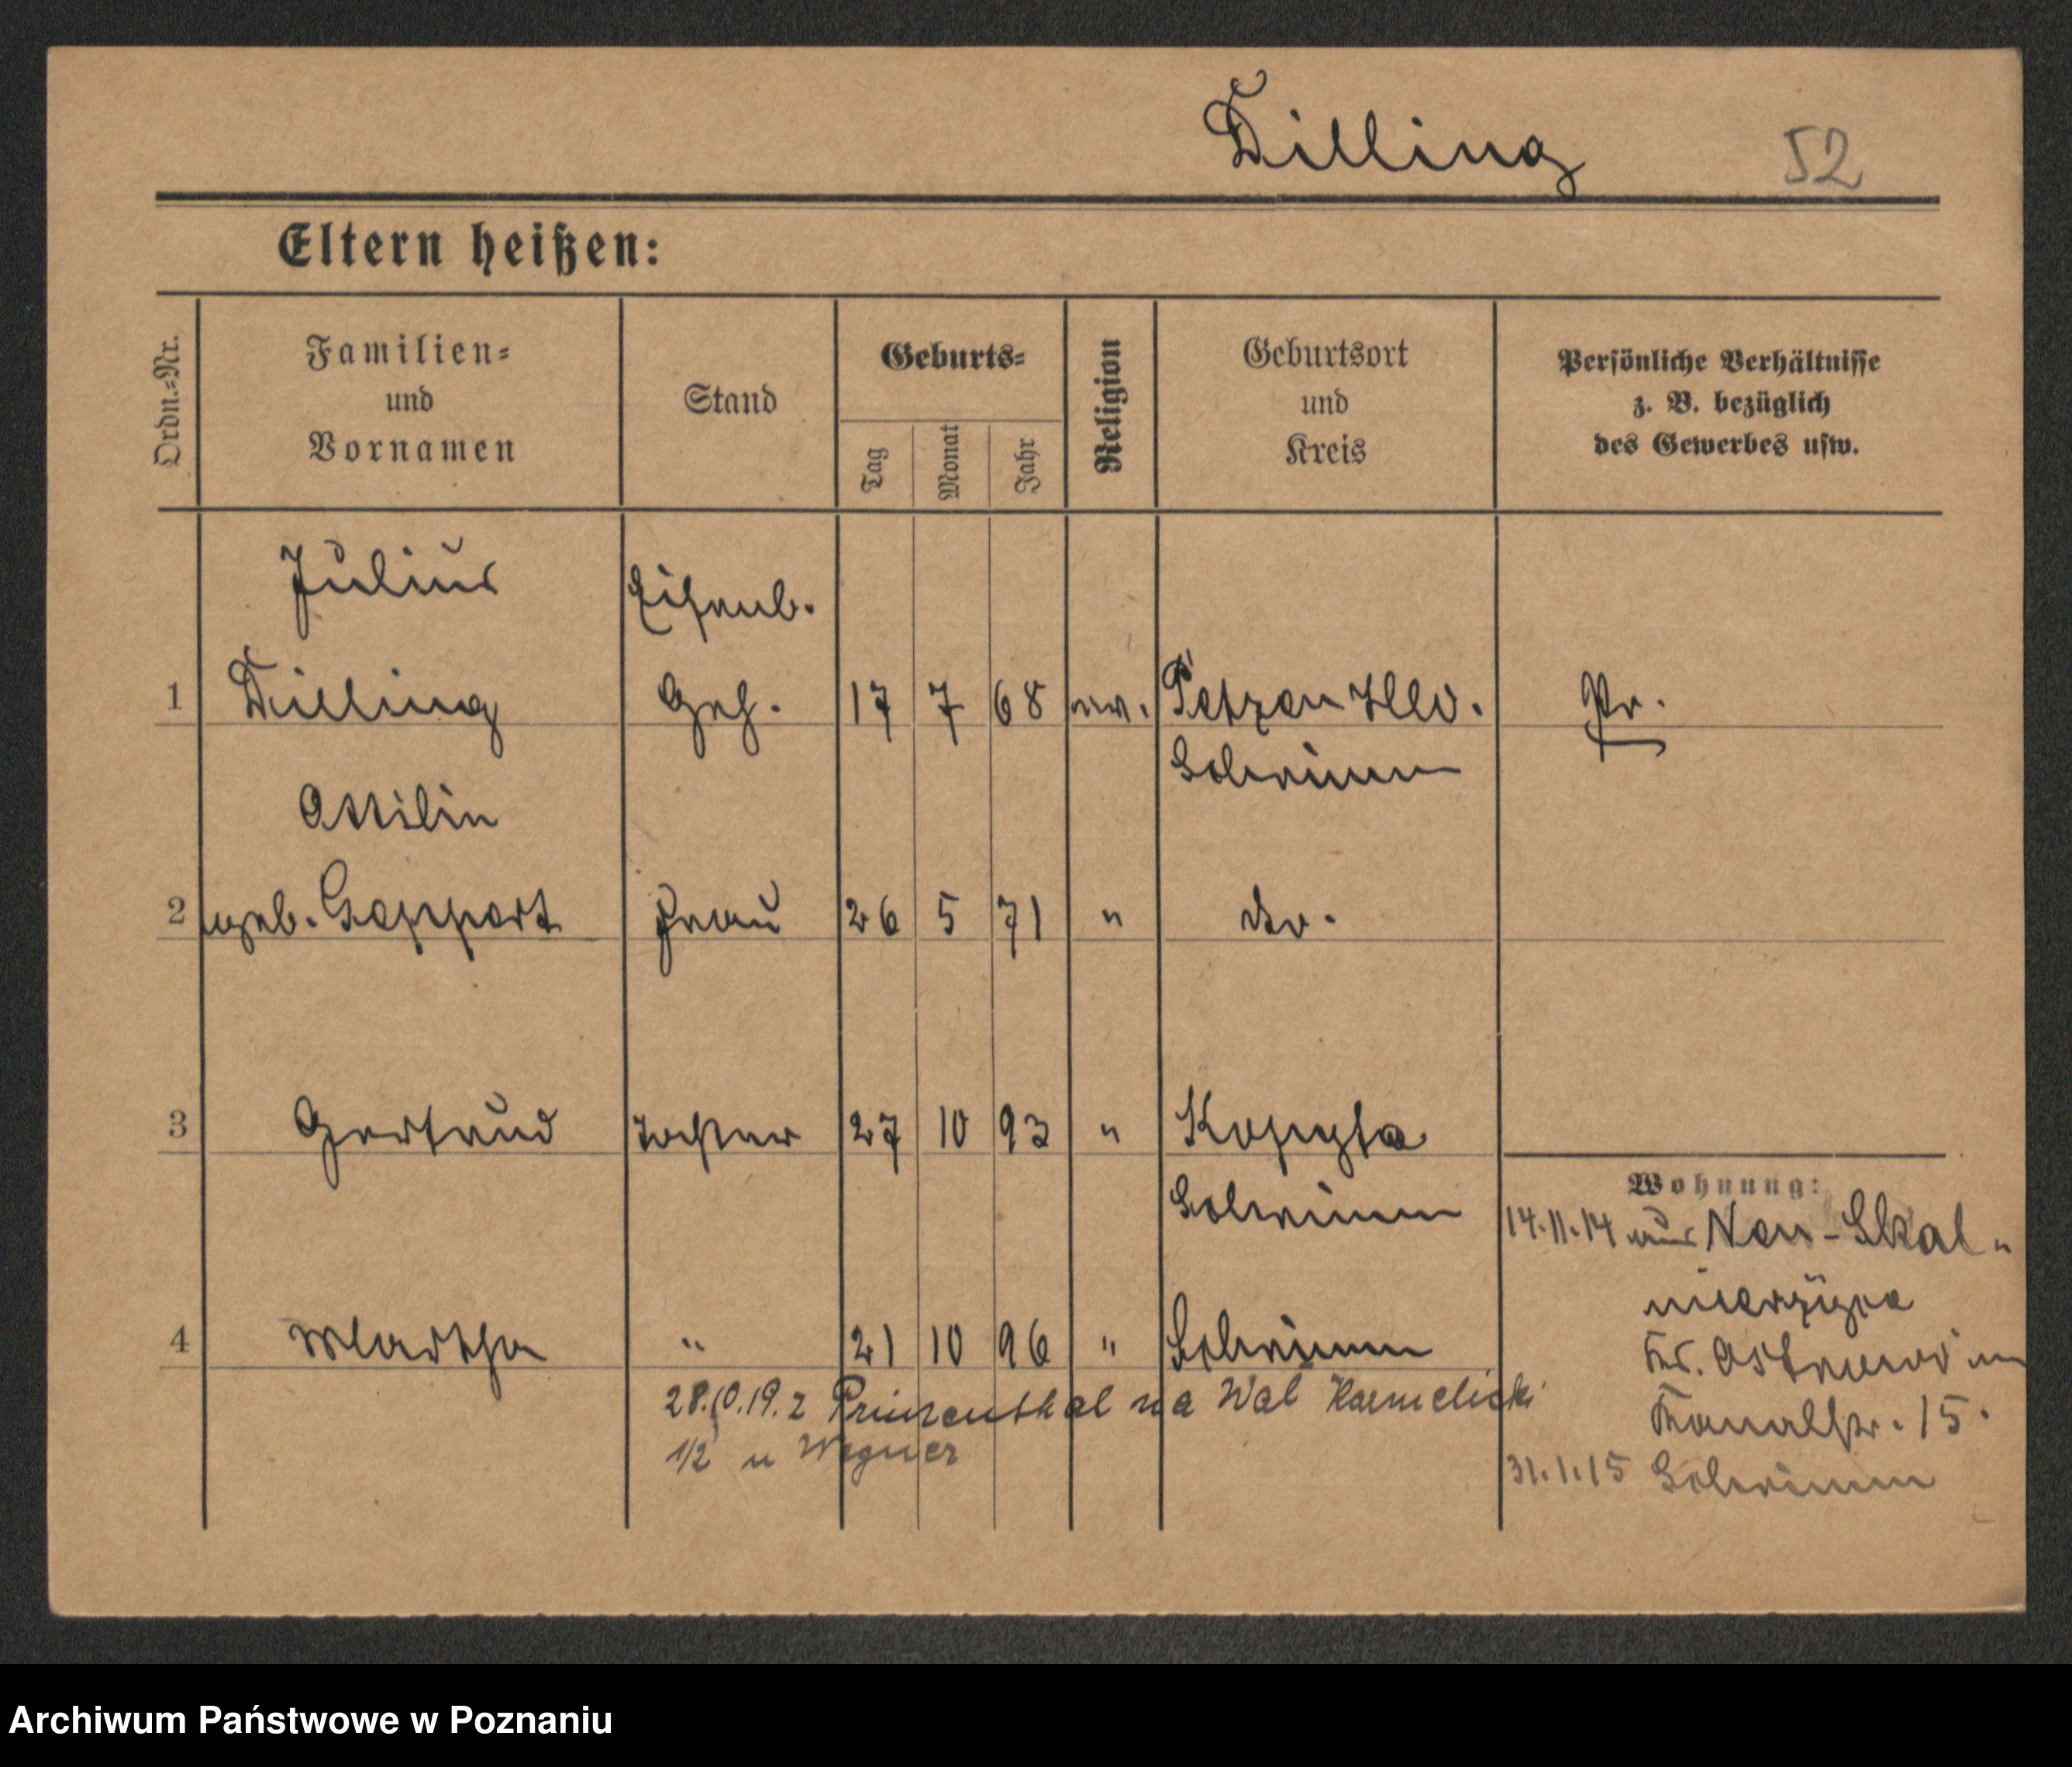 Dilling 52
Eltern heißen:
Ordn.-Nr.
Familien-
und
Vornamen
Stand
Geburts-
Tag
Monat
Jahr
Religion
Geburtsort
und
Kreis
Persönliche Verhältnisse
z. B. bezüglich
des Gewerbes usw.
Julius Eisenb.
1 Dilling Geh. 17 7 68 ev. Petzen Hld. Pr.
Schrimm
Ottilie
2 geb. Geppert Frau 26 5 71 " do.
3 Gertrud Tochter 27 10 93 " Kopyta
Wohnung:
Schrimm 14.11.14 aus Neu-Skal-
mierzyce
4 Martha " 21 10 96 " Schrimm Kr. Ostrowo
28.10.19. z Prinzenthal na Wal Karmelicki
1/2 u Wegner
Kanalstr. 15.
31.1.15 Schrimm
Archiwum Państwowe w Poznaniu